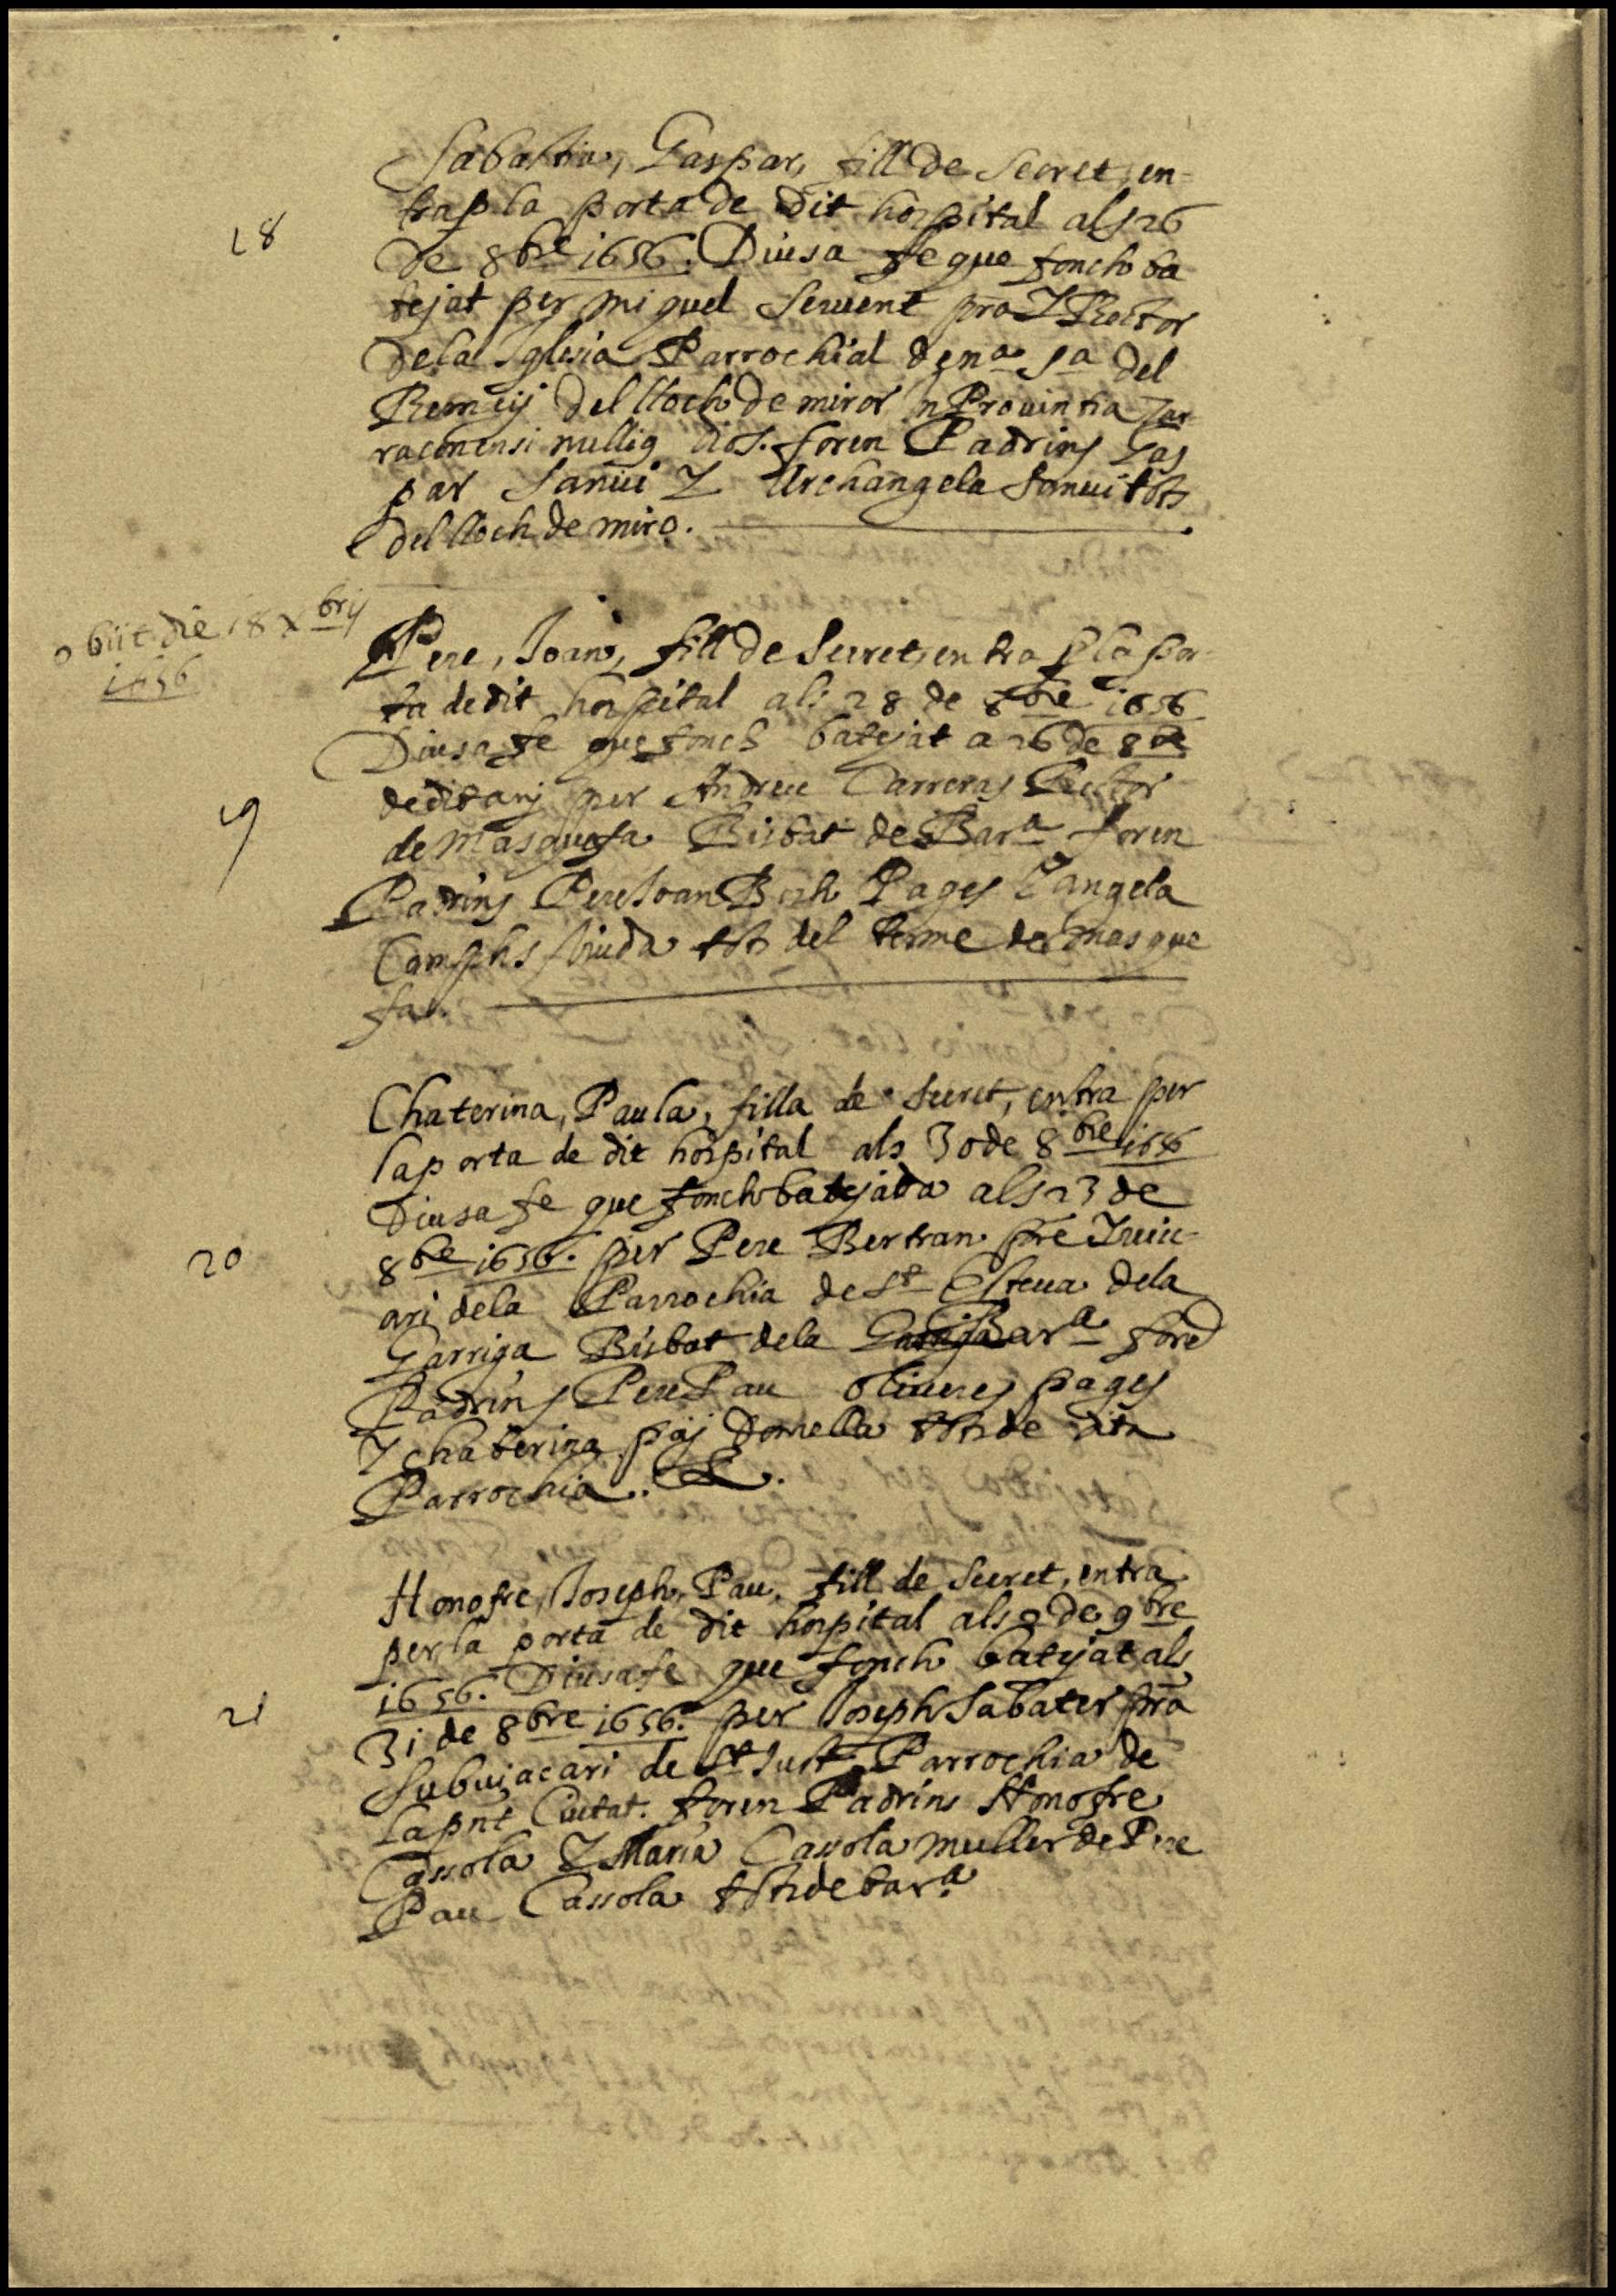 Sabastia, Gaspar, fill de Secret, en-
tra p la porta de dit hospital als 26
18
de 8bre 1656. Diusa fe que fonch ba
tejat per Miquel Seruent pra Y Rector
dela Iglesia Parrochial de na Sa del
Remeij del lloch de miror in Prouintia Tar
raconensi nullig dios. foren Padrins Gas
par Sanui Y Archangela Sanui tots
del lloch de miro.
obiit die 18 xbrij
1656
Pere, Joan, fill de Secret, entra p la por
ta de dit hospital als 28 de 8bre 1656
Diusa fe que fonch batejat a 26 de 8bre
19
de dit anj per Andreu Carreras Rector
de Masquefa Bisbat de Bara foren
Padrins Pere Joan Pages Y angela
viuda tots del terme de Masque
fa.
Chaterina, Paula, filla de Secret, entra per
la porta de dit hospital als 30 de 8bre 1656
Diusa fe que fonch batejada als 23 de
20
8bre 1656. per Pere Bertran pre Y uic
ari dela Parrochia de St Esteua dela
Garriga Bisbat dela Garriga Bara foren
Padrins Pere Pau oliueres pages
Y chaterina paj donsella tots de dita
Parrochia.
Honofre, Joseph, Pau, fill de Secret, entra
per la porta de dit hospital als 2 de 9bre
1656. Diusa fe que fonch batejat als
21
31 de 8bre 1656. per Joseph Sabater pra
Subuicari de St Just Parrochia de
la pnt Ciutat. foren Padrins Honofre
Cassola Y Maria Cassola muller de Pere
Pau Cassola tots de bara